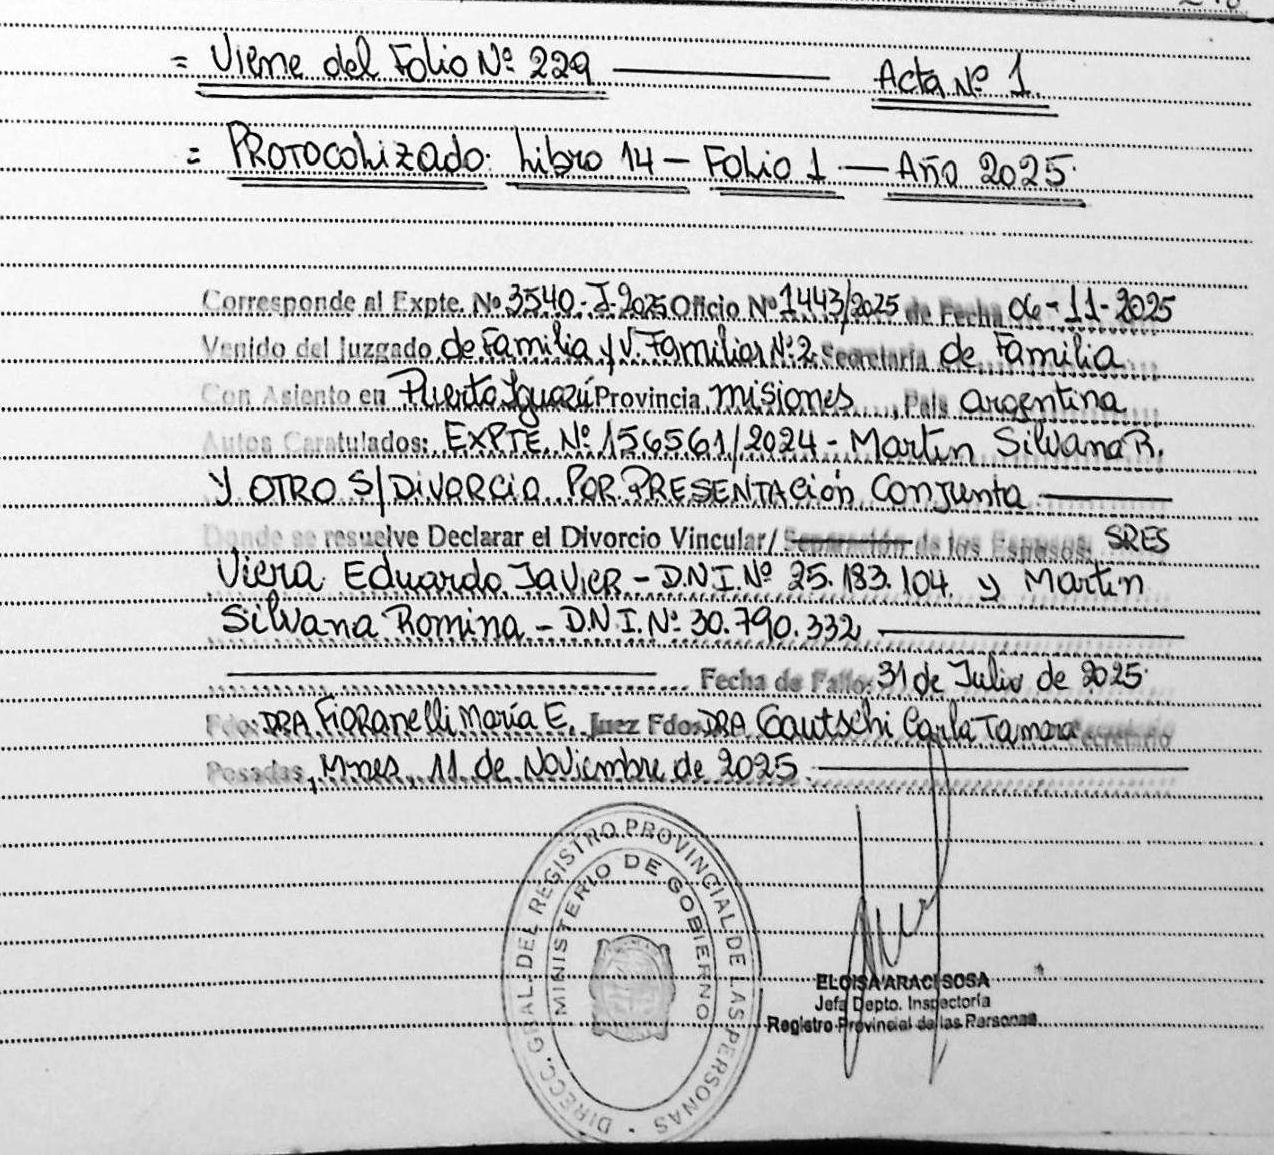 = Viene del Folio Nº 229 ——— Acta Nº 1.
= PROTOCOLIZADO: Libro 14 – Folio 1 — Año 2025.
Corresponde al Expte. Nº 3540-J-2025 Oficio Nº 1443/2025 de Fecha 06-11-2025
Venido del Juzgado de Familia y V. Familiar Nº 2 Secretaría de Familia
Con Asiento en Puerto Iguazú Provincia misiones País argentina
Autos Caratulados: EXPTE. Nº 156561/2024 - Martin Silvana R.
Y OTRO S/DIVORCIO POR PRESENTACIÓN CONJUNTA ———
Donde se resuelve Declarar el Divorcio Vincular/ Separación de los Esposos: SRES
Viera Eduardo JAVIER – D.N.I. Nº 25.183.104 y Martin
Silvana Romina – D.N.I. Nº 30.790.332 ———
——— Fecha de Fallo: 31 de Julio de 2025.
Fdo: DRA. FIORANELLI MARÍA E. Juez Fdo: DRA Gautschi Carla Tamara Secretario
Posadas, Mnes, 11 de Noviembre de 2025 ———
DIRECC. GRAL. DEL REGISTRO PROVINCIAL DE LAS PERSONAS
MINISTERIO DE GOBIERNO
ELOISA ARACI SOSA
Jefa Depto. Inspectoría
Registro Provincial de las Personas